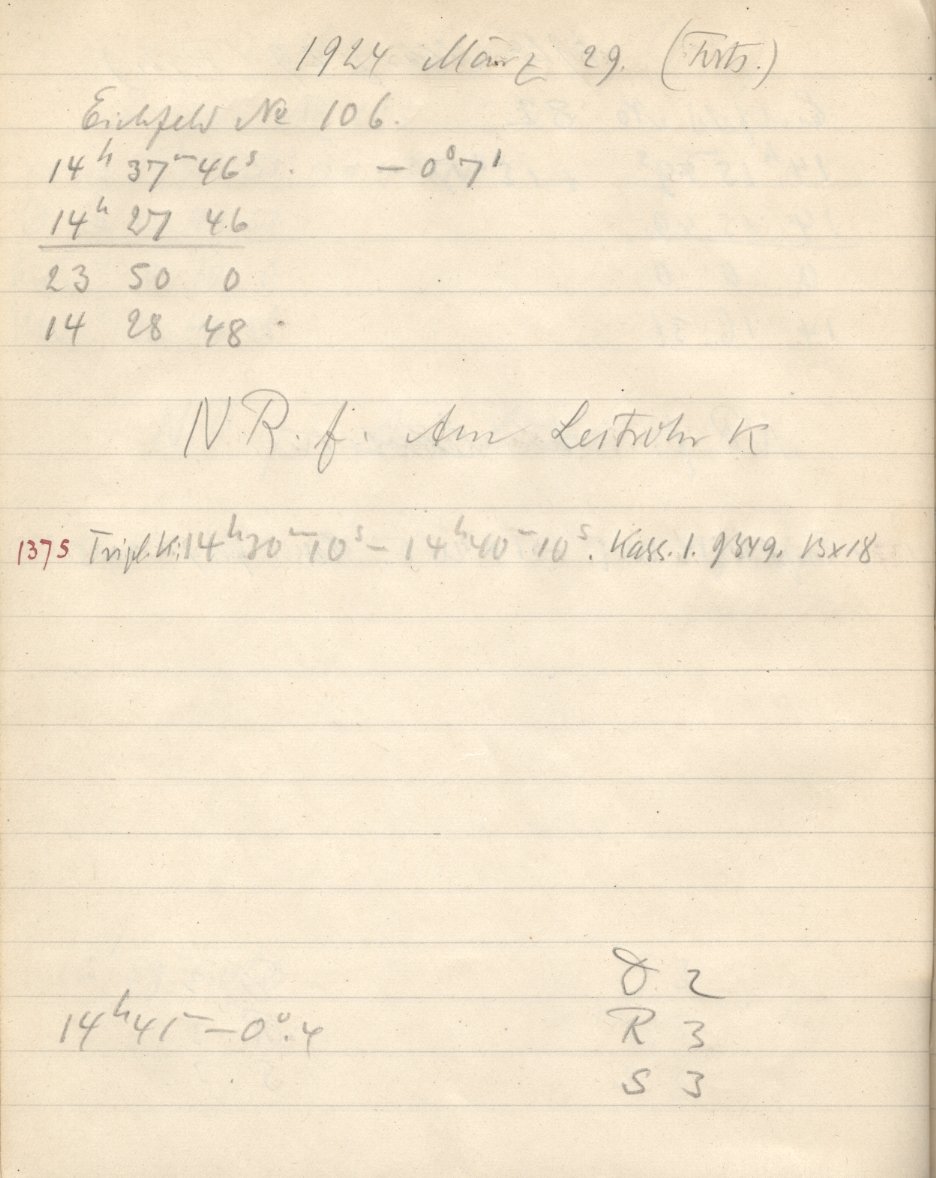 1924 März 29. (Forts.)
Eichfeld № 106.
14ʰ 37ᵐ 46ˢ. – 0° 7'
14ʰ 27 46
23 50 0
14 28 48
N. R. f. Am Leitrohr K
1375 Tripl. K: 14ʰ 30ᵐ 10ˢ – 14ʰ 40ᵐ 10ˢ. Kass. 1. 9349. 13x18
D 2
14ʰ 41ᵐ – 0°.4 R 3
S 3